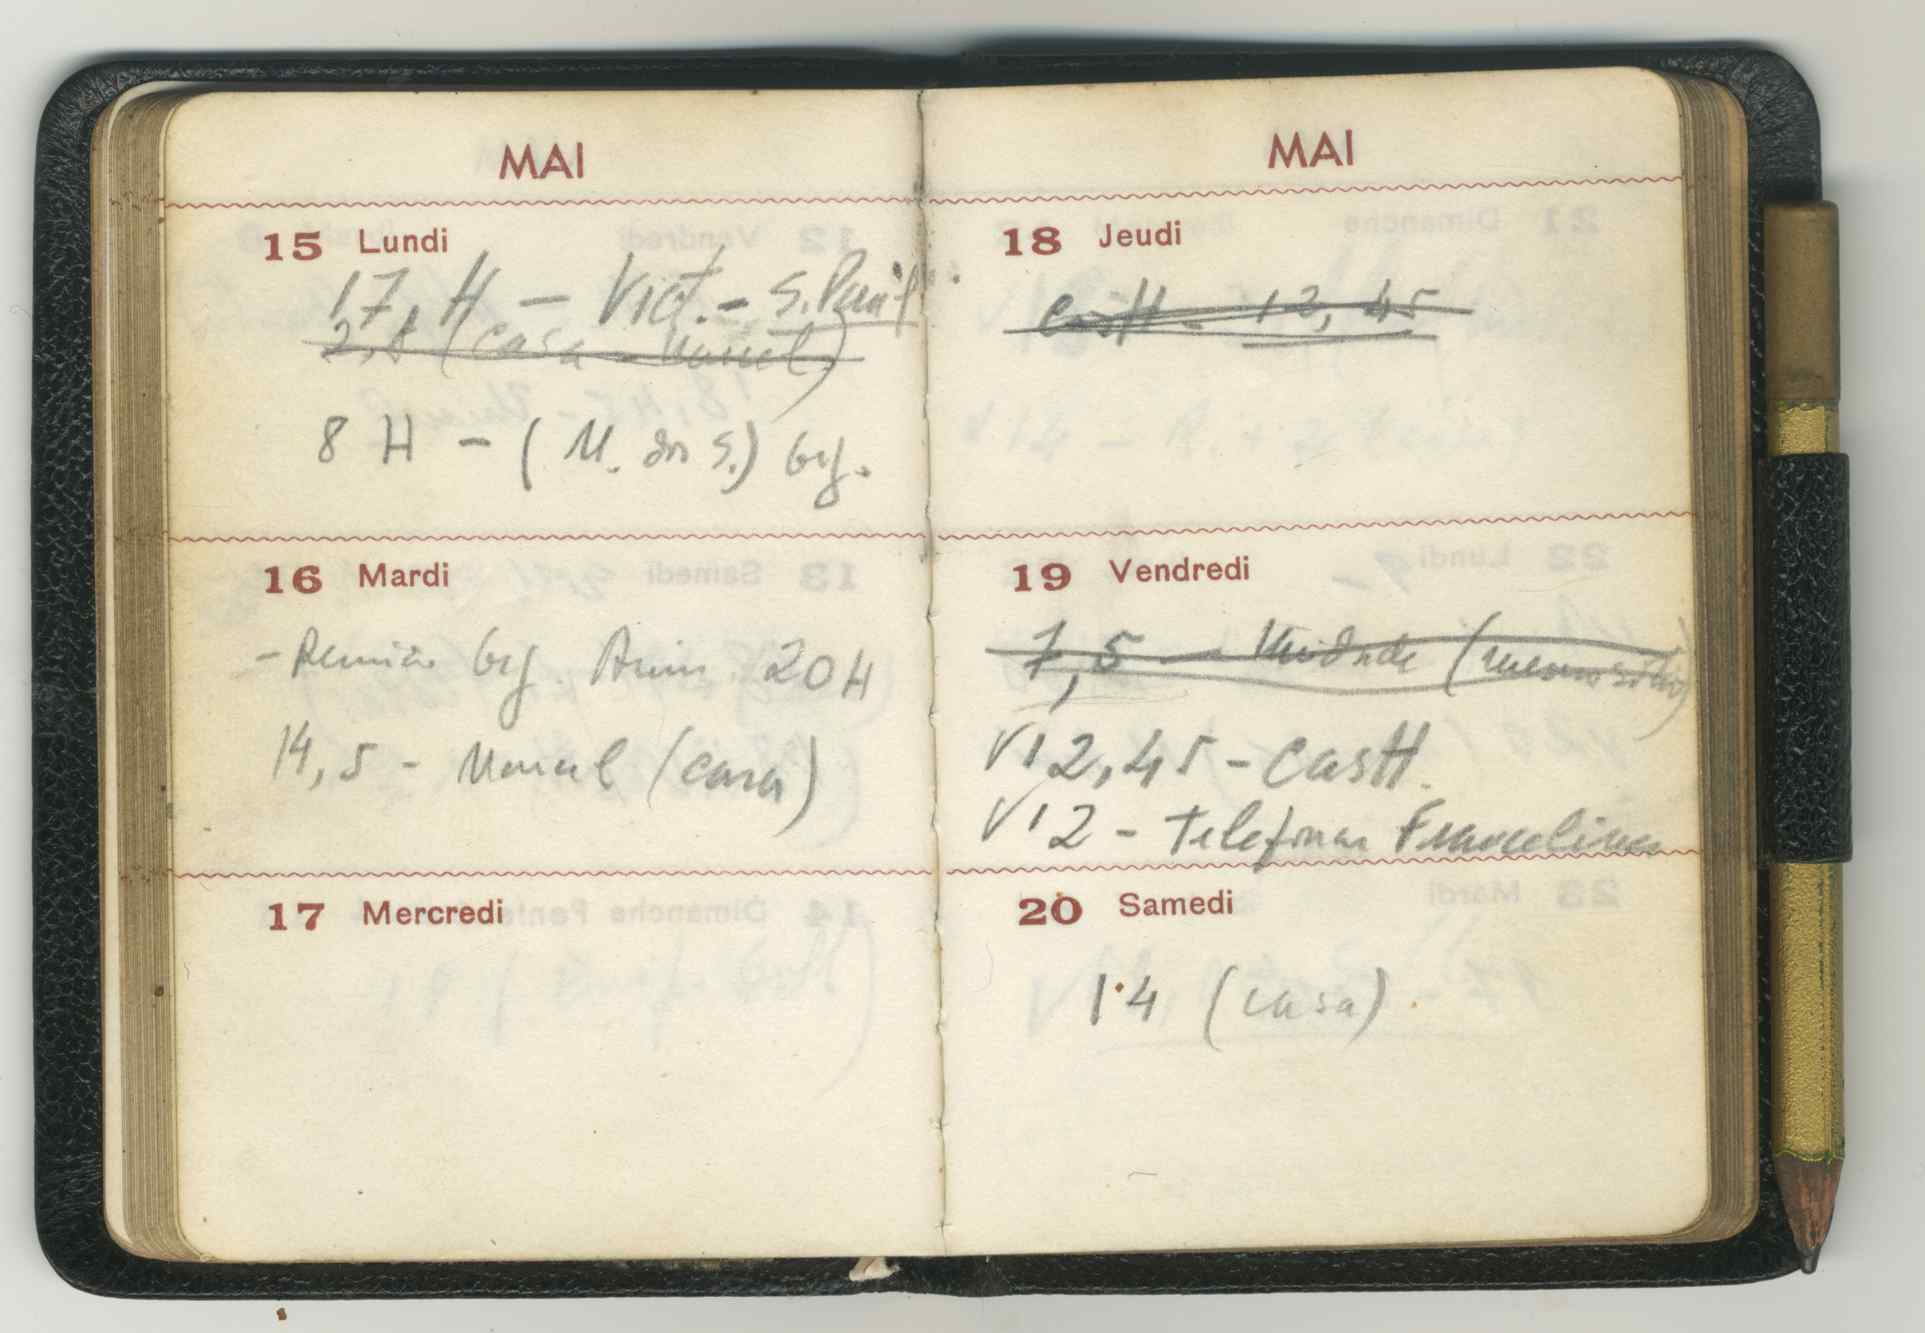 MAI
15 Lundi
17, H - Vict. - S. Paul
2, (casa
8 H - (M. dos S.)
16 Mardi
- Reunião 20 H
14,5 - Manuel (casa)
17 Mercredi
MAI
18 Jeudi
CastH - 12,45
19 Vendredi
7,5 - (mesmo sítio)
V12,45 - CastH.
V12 - Telefonar Francelina
20 Samedi
14 (casa)